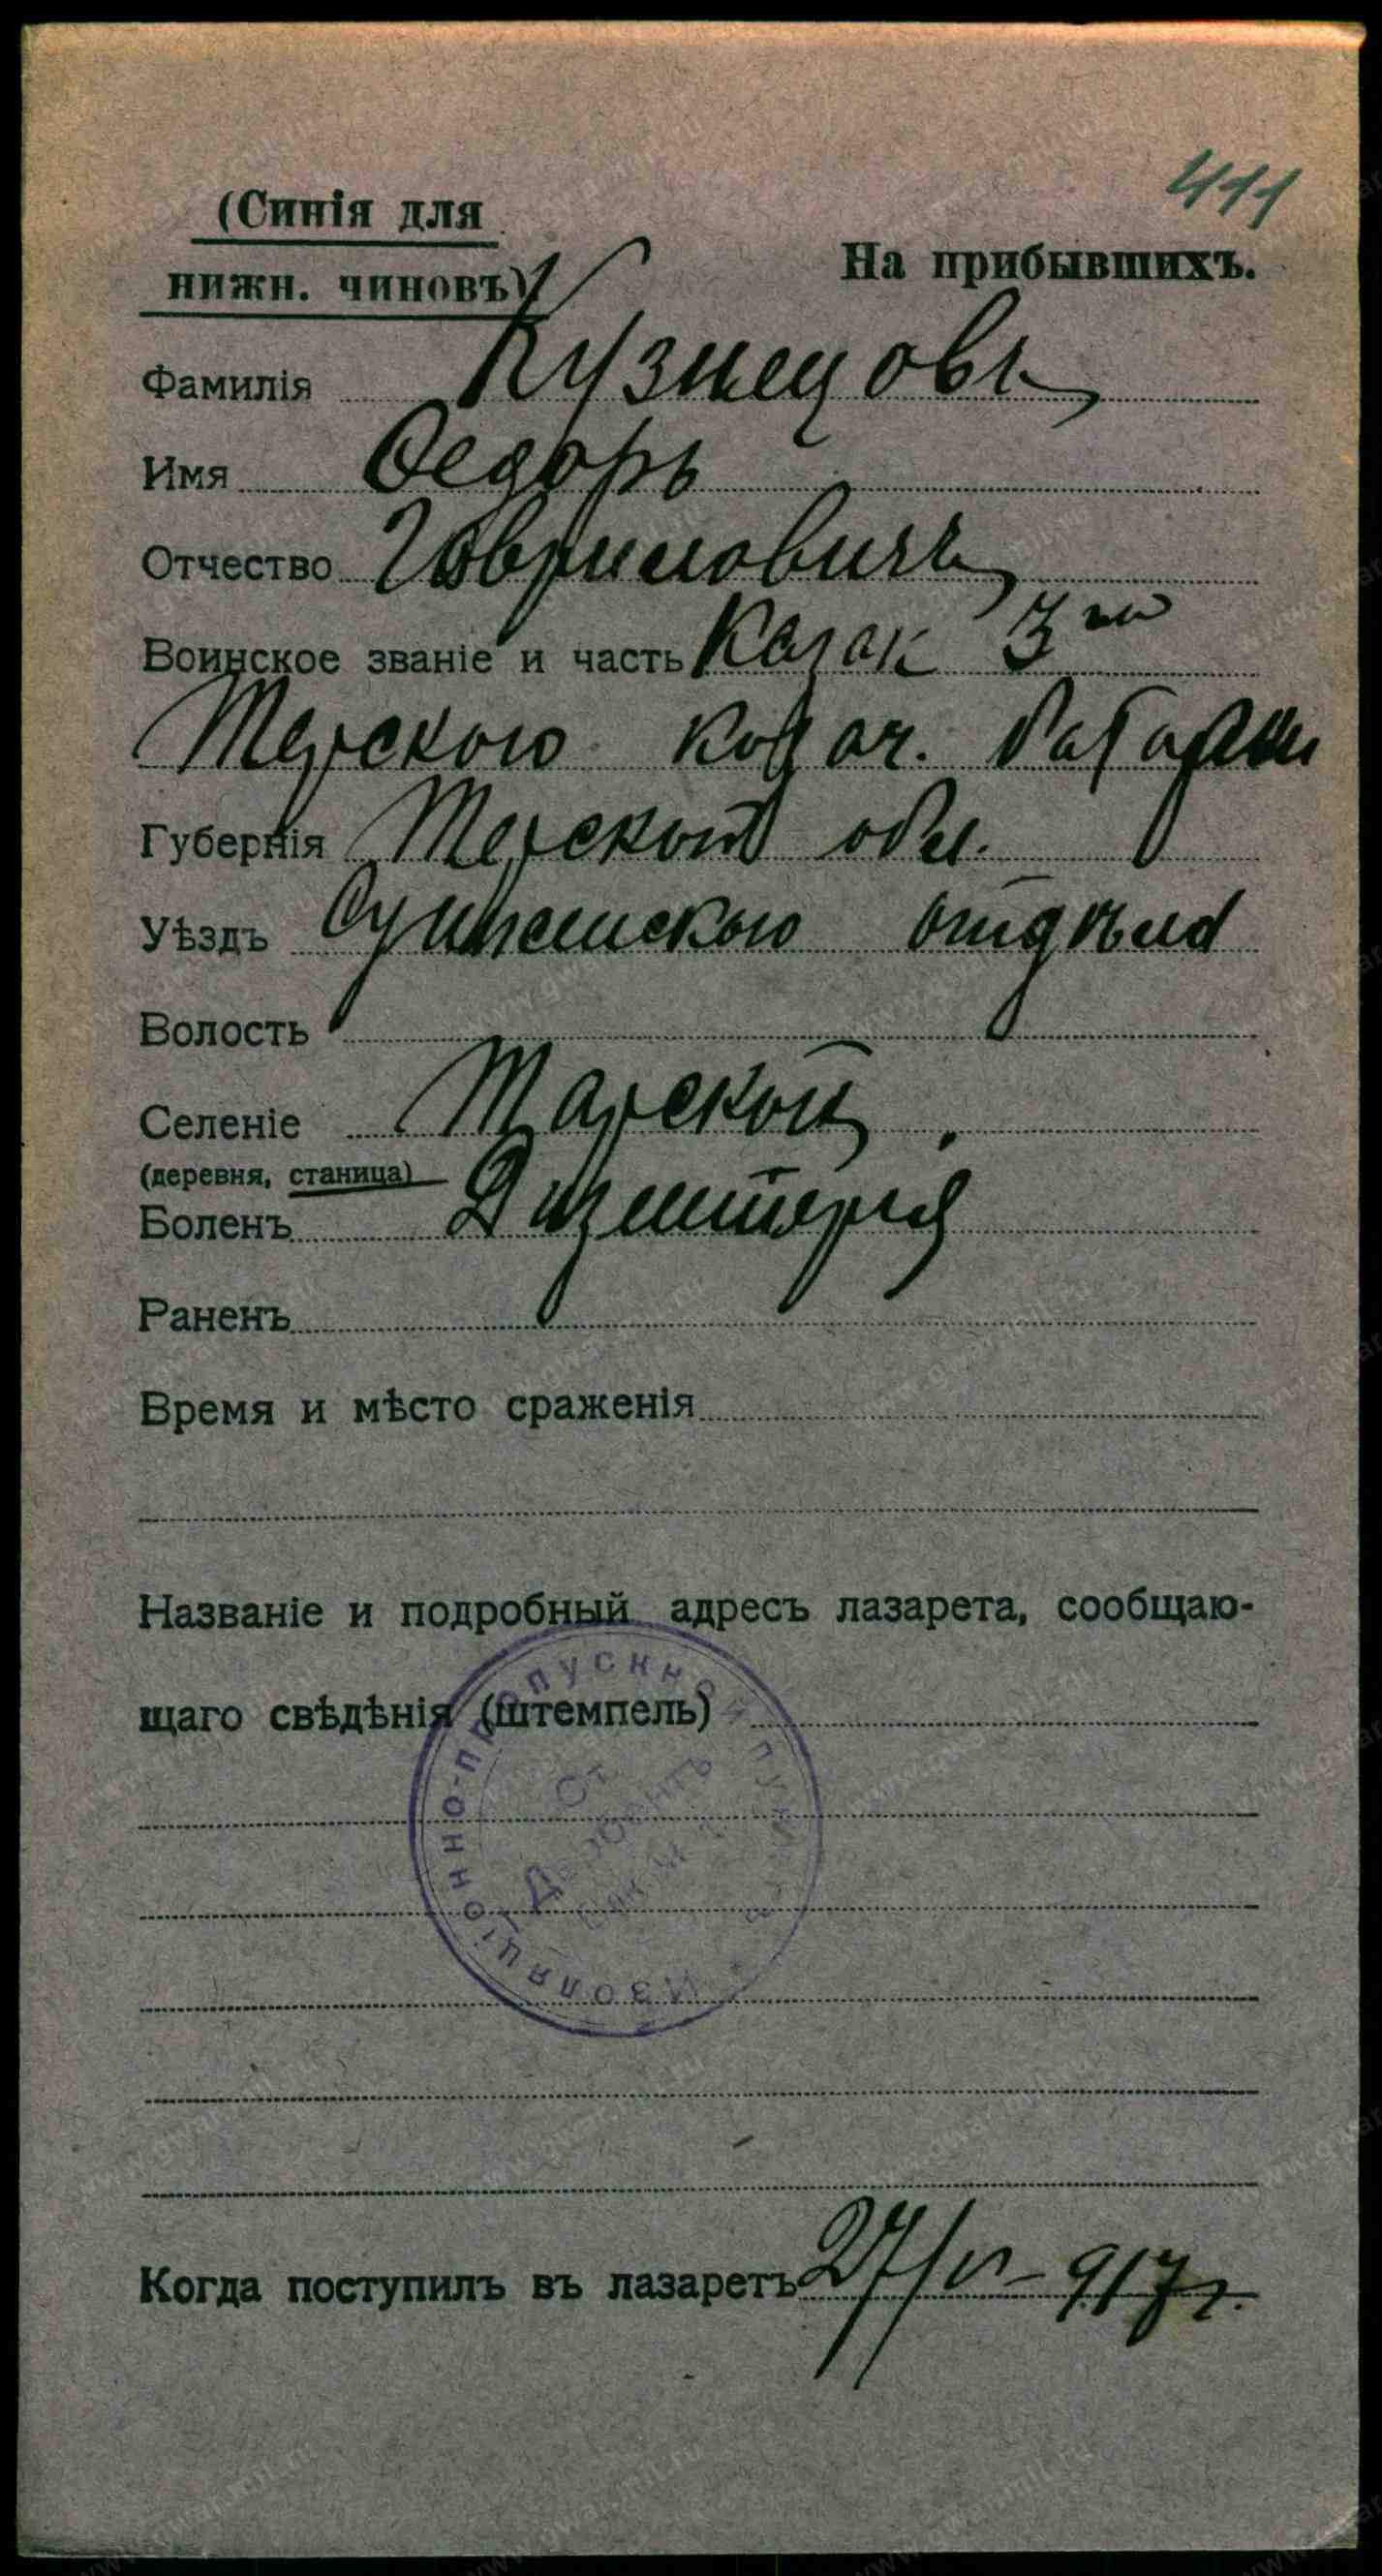 411
(Синія для
нижн. чиновъ)
На прибывшихъ.
Фамилія Кузнецовъ
Имя Ѳедоръ
Отчество Гавриловичъ
Воинское званіе и часть Казак 3го
Терского казач. батареи
Губернія Терской обл.
Уѣздъ Сунженского отдѣла
Волость
Селеніе Тарской
(деревня, станица)
Боленъ Дизентерія
Раненъ
Время и мѣсто сраженія
Названіе и подробный адресъ лазарета, сообщаю-
щаго свѣдѣнія (штемпель)
Изоляціонно-пропускной пунктъ
Ст.
Дербентъ
Когда поступилъ въ лазаретъ 27/VI-917 г.